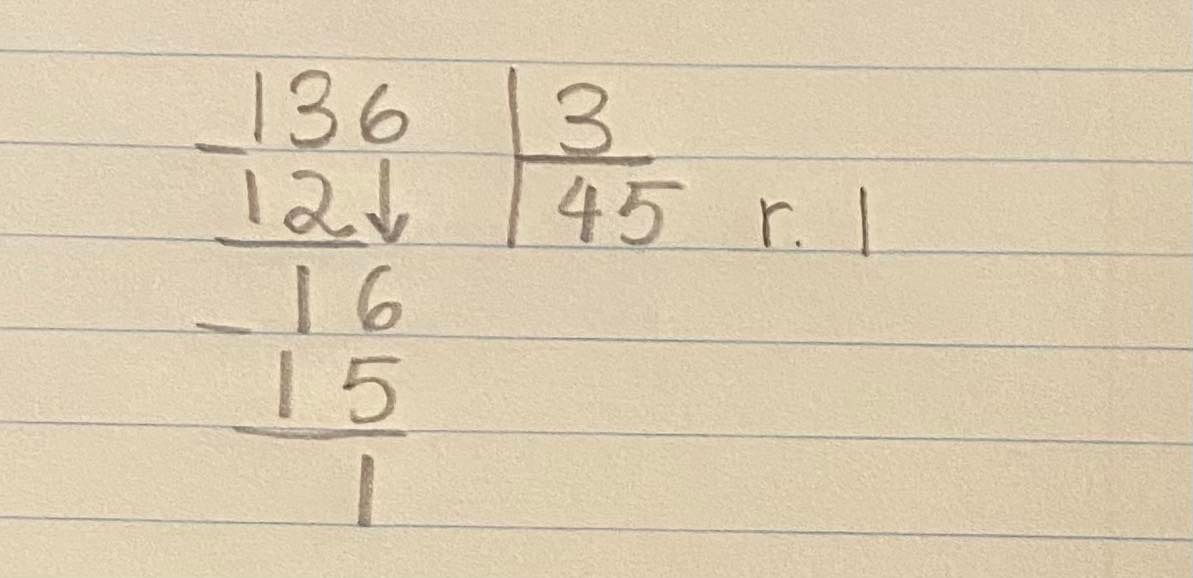 136 3
12↓ 45 r. 1
16
15
1